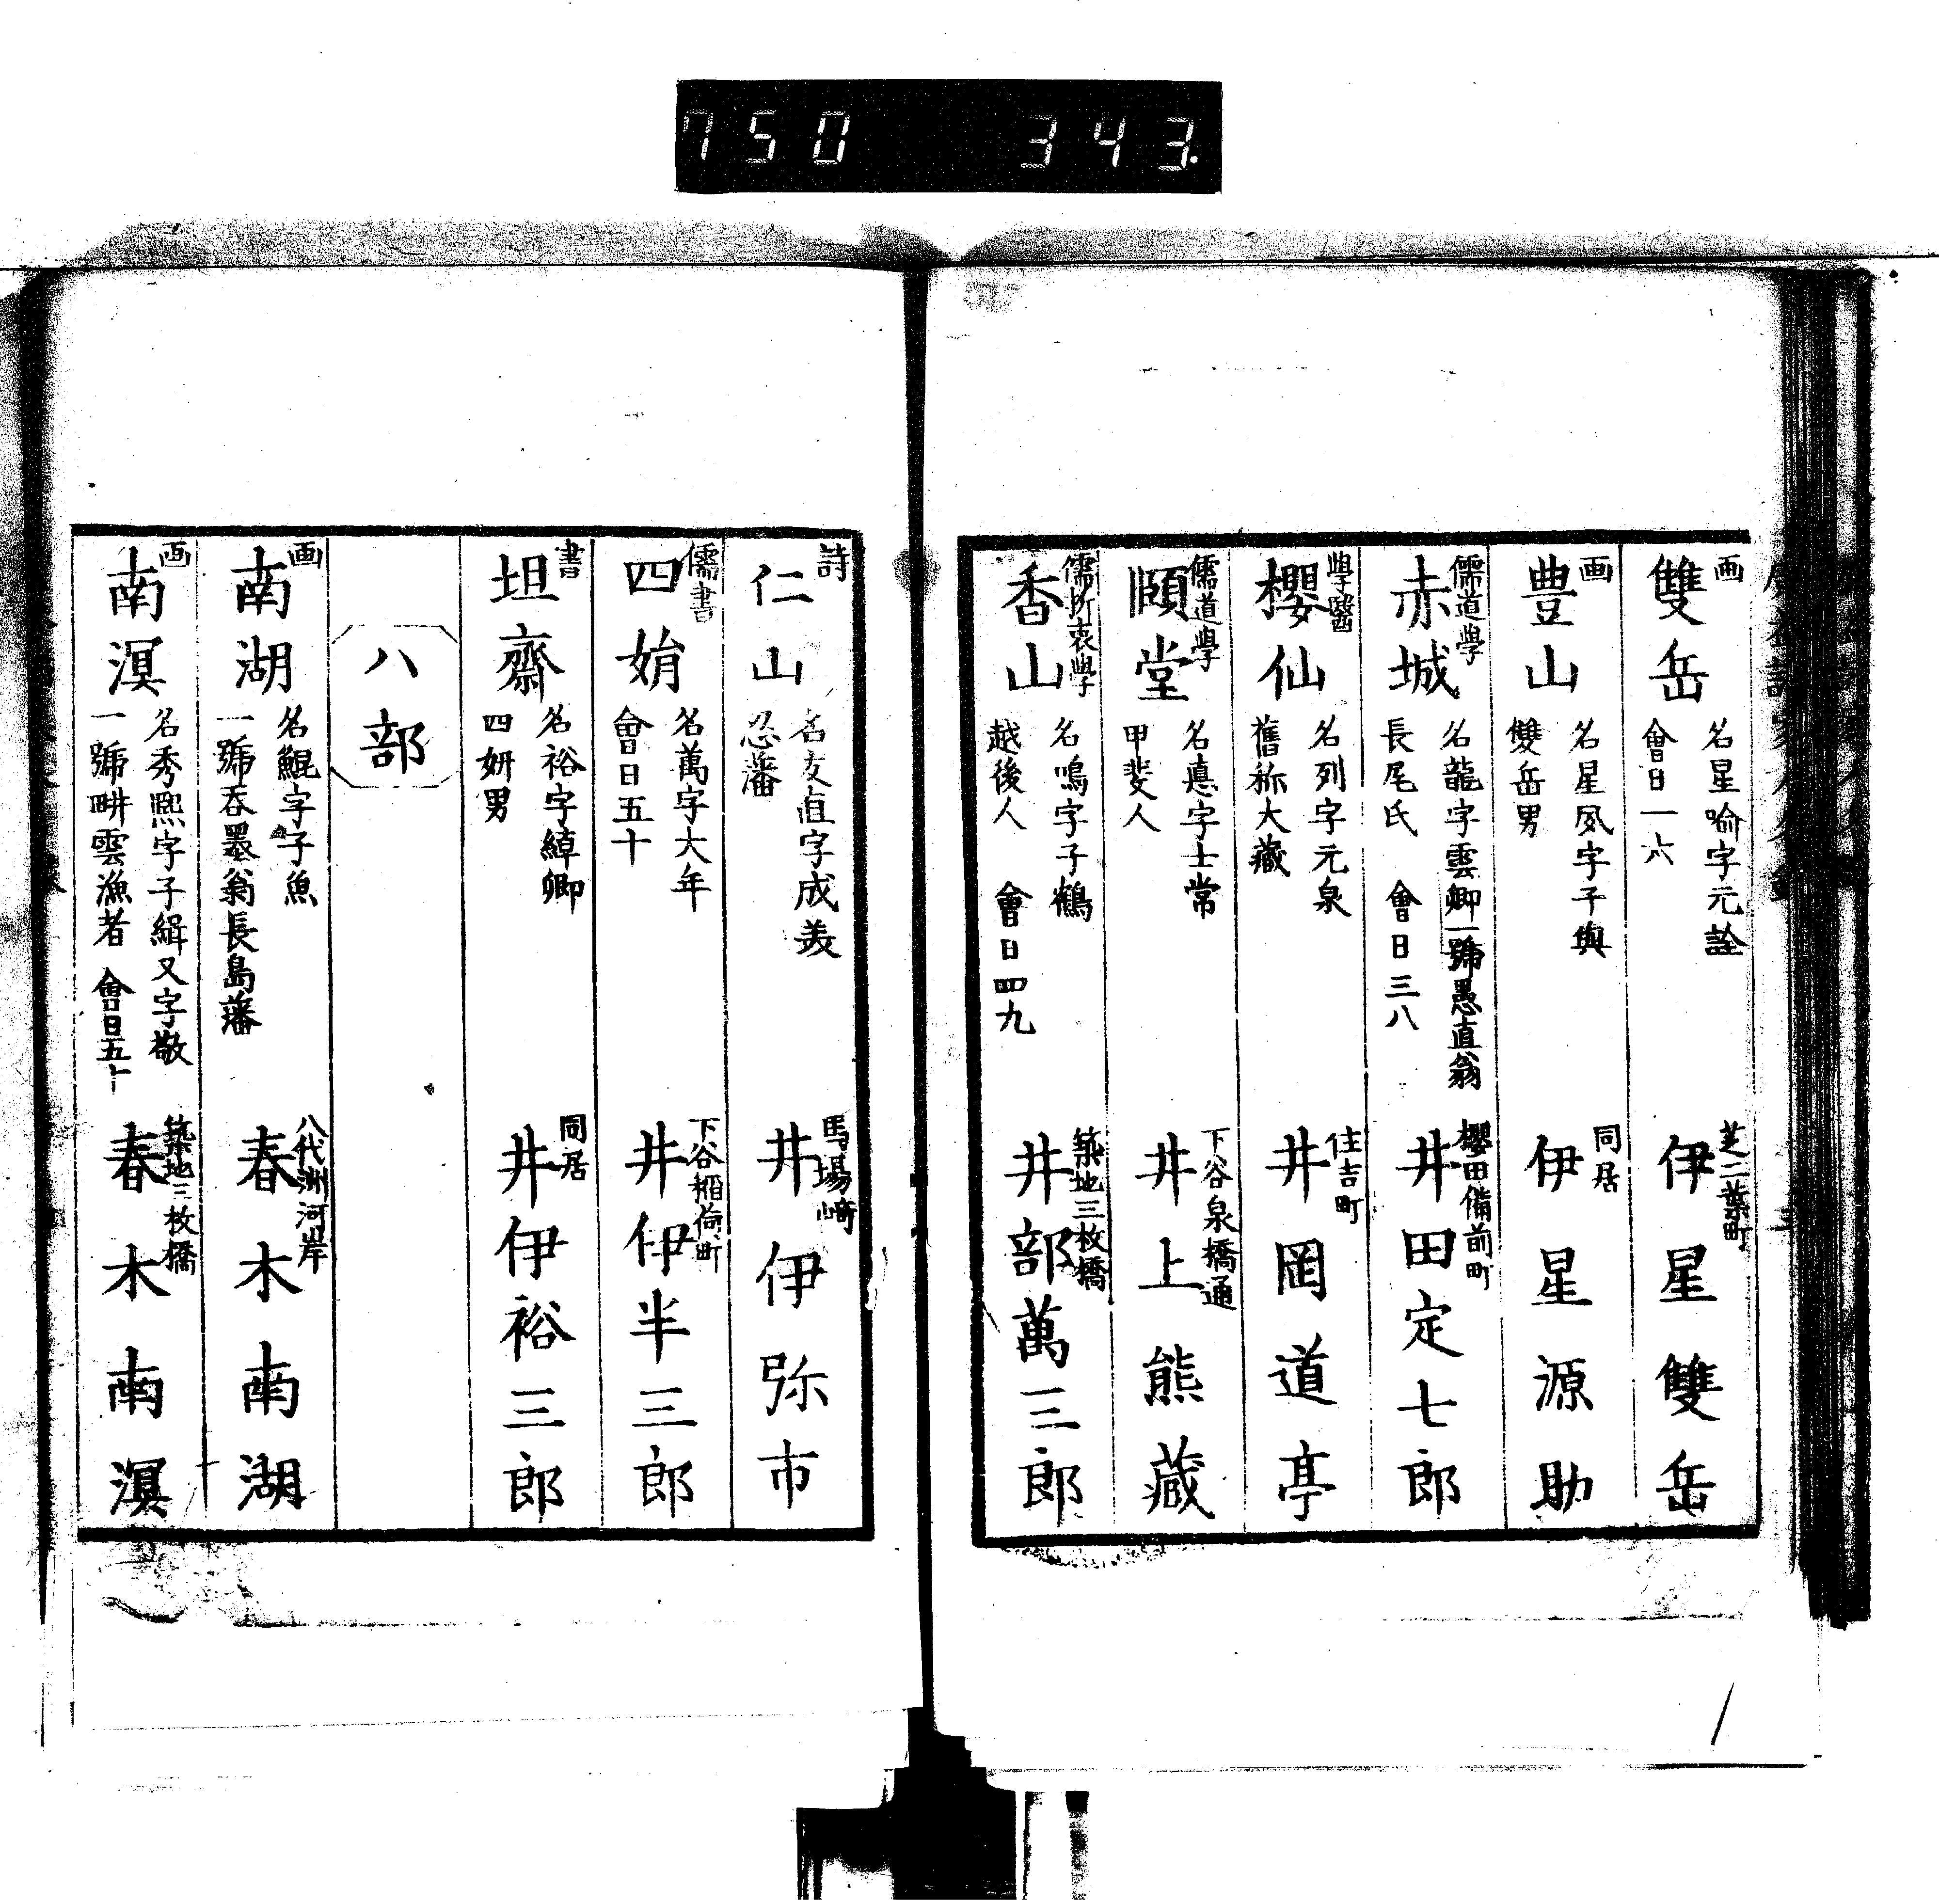 750 343.
画
雙岳
名星喩字元詮
會日一六
芝二葉町
伊星雙岳
画
豊山
名星凮字子輿
雙岳男
同居
伊星源助
儒道學
赤城
名龍字雲卿一號愚直翁
長尾氏 會日三八
櫻田備前町
井田定七郎
學醫
櫻仙
名列字元泉
舊称大藏
住吉町
井岡道亭
儒道學
頤堂
名悳字士常
甲斐人
下谷泉橋通
井上熊藏
儒折衷學
香山
名鳴字子鶴
越後人 會日四九
築地三枚橋
井部萬三郎
詩
仁山
名友直字成美
忍藩
馬場崎
井伊弥市
儒書
四娟
名萬字大年
會日五十
下谷稲荷町
井伊半三郎
書
坦齋
名裕字綽卿
四妍男
同居
井伊裕三郎
八部
画
南湖
名鯤字子魚
一號吞墨翁長島藩
八代洲河岸
春木南湖
画
南溟
名秀熈字子緝又字敬
一號畊雲漁者 會日五十
築地三枚橋
春木南溟